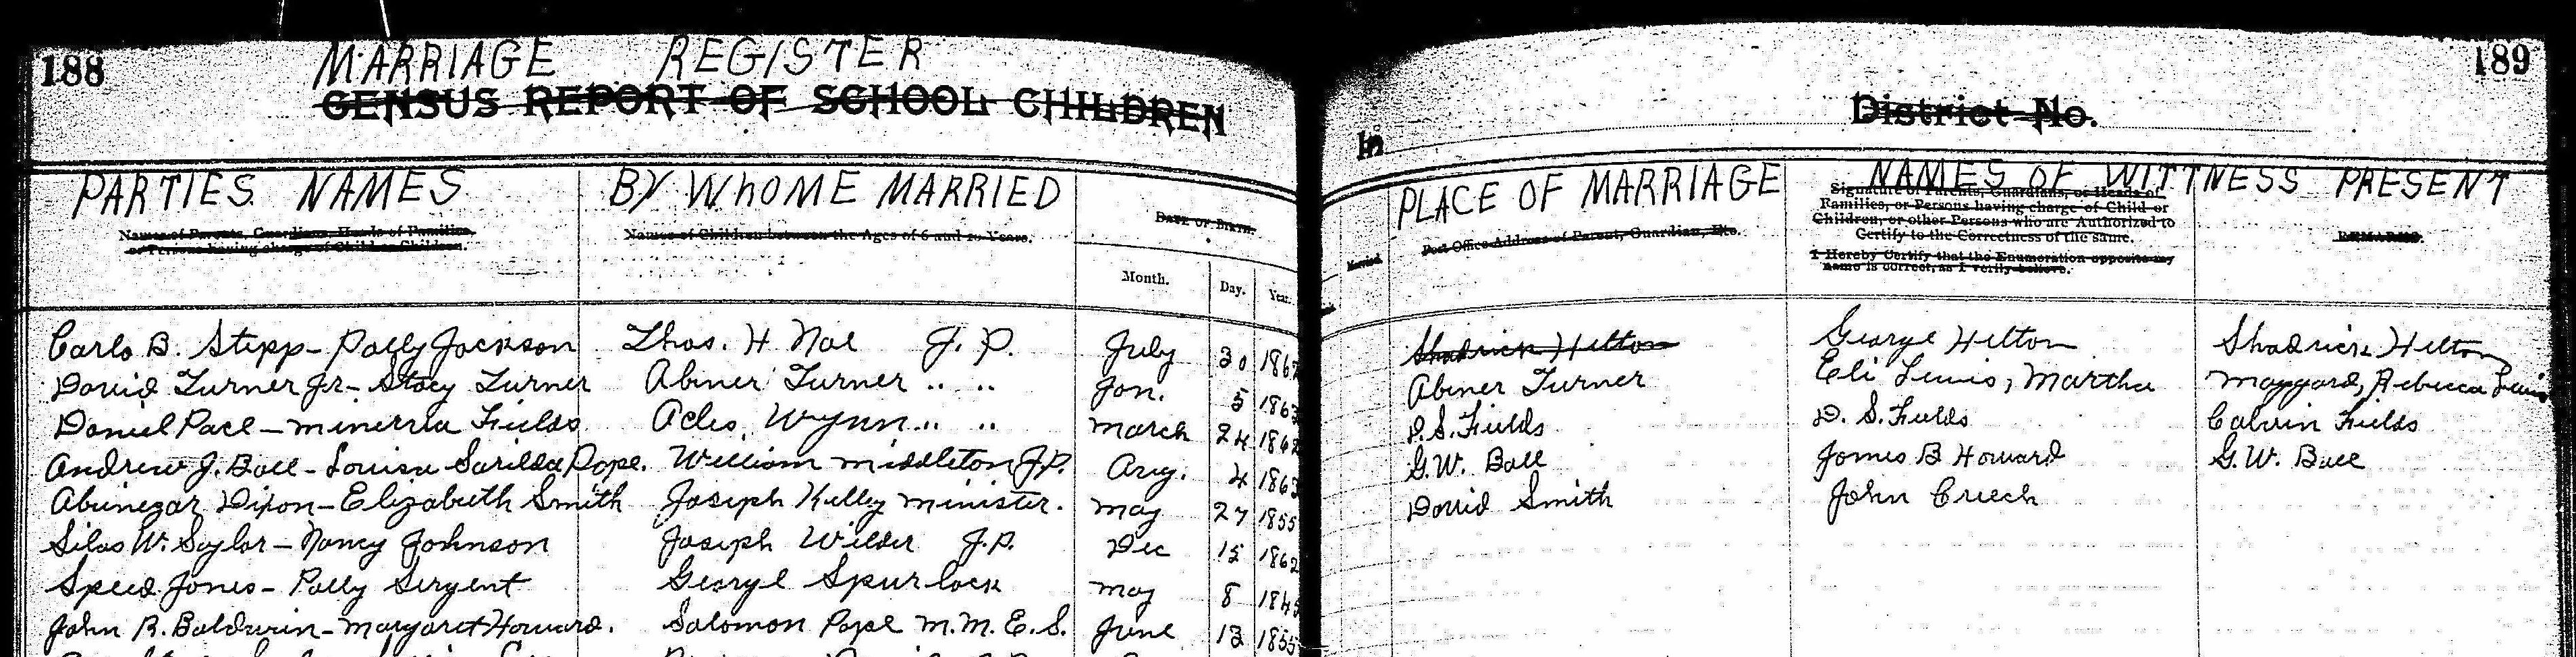 188
MARRIAGE REGISTER
CENSUS REPORT OF SCHOOL CHILDREN
189
District No.
In
PARTIES NAMES
Names of Parents, Guardians, Heads of Families, or Persons having charge of Child or Children.
BY WHOME MARRIED
Names of Children between the Ages of 6 and 20 Years.
DATE OF BIRTH.
Month. Day. Year.
PLACE OF MARRIAGE
Post Office Address of Parent, Guardian, Etc.
NAMES OF WITTNESS PRESENT
Signature of Parents, Guardians, or Heads of
Families, or Persons having charge of Child or
Children, or other Persons who are Authorized to
Certify to the Correctness of the same.
I Hereby Certify that the Enumeration opposite my
name is correct, as I verily believe.
REMARKS.
Carlo B. Stepp - Polly Jackson Thos. H Nol J. P. July 30 1862 Shadrick Helton George Helton Shadrick Helton
David Turner Jr - Stacy Turner Abner Turner " " Jan. 5 1863 Abner Turner Eli Lewis, Martha Maggard, Rebecca Lewis
Daniel Pace - Minerria Fields Acles. Wynn " " March 24 1862 D.S. Fields D. S. Fields Calvin Fields
Andrew J. Ball - Louisa Sarilda Pope. William Middleton J.P. Aug. 4 1862 G.W. Ball James B Howard G.W. Ball
Abinegar Dixon - Elizabeth Smith Joseph Kelley Minister. May 27 1855 David Smith John Creech
Silas W. Saylor - Nancy Johnson Joseph Wilder J.P. Dec 15 1862
Speed Jones - Polly Sergent George Spurlock May 8 1845
John R. Baldwin - Margaret Howard. Solomon Pope M.M.E.S. June 13 1855